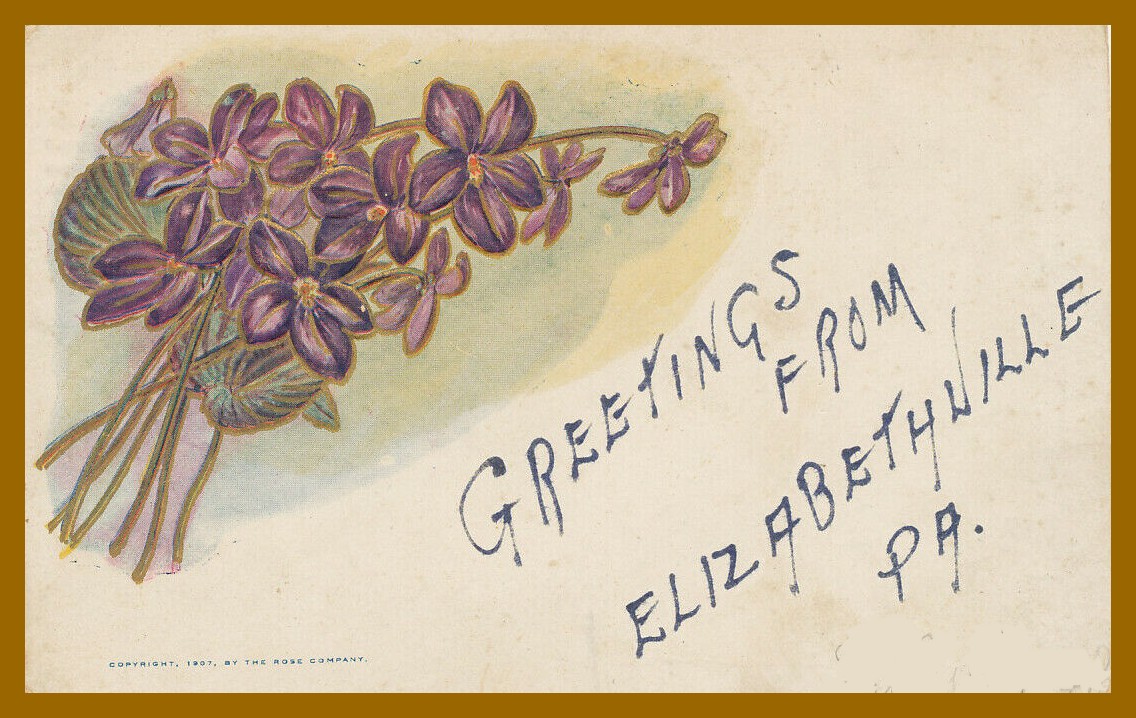 GREETINGS
FROM
ELIZABETHVILLE
PA.
COPYRIGHT, 1907, BY THE ROSE COMPANY.